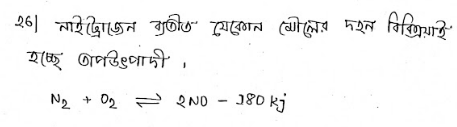 ২৬| নাইট্রোজেন ব্যতীত যেকোন মৌলের দহন বিক্রিয়াই
হচ্ছে তাপউৎপাদী ।
N₂ + O₂ ⇌ 2NO - 180 kj